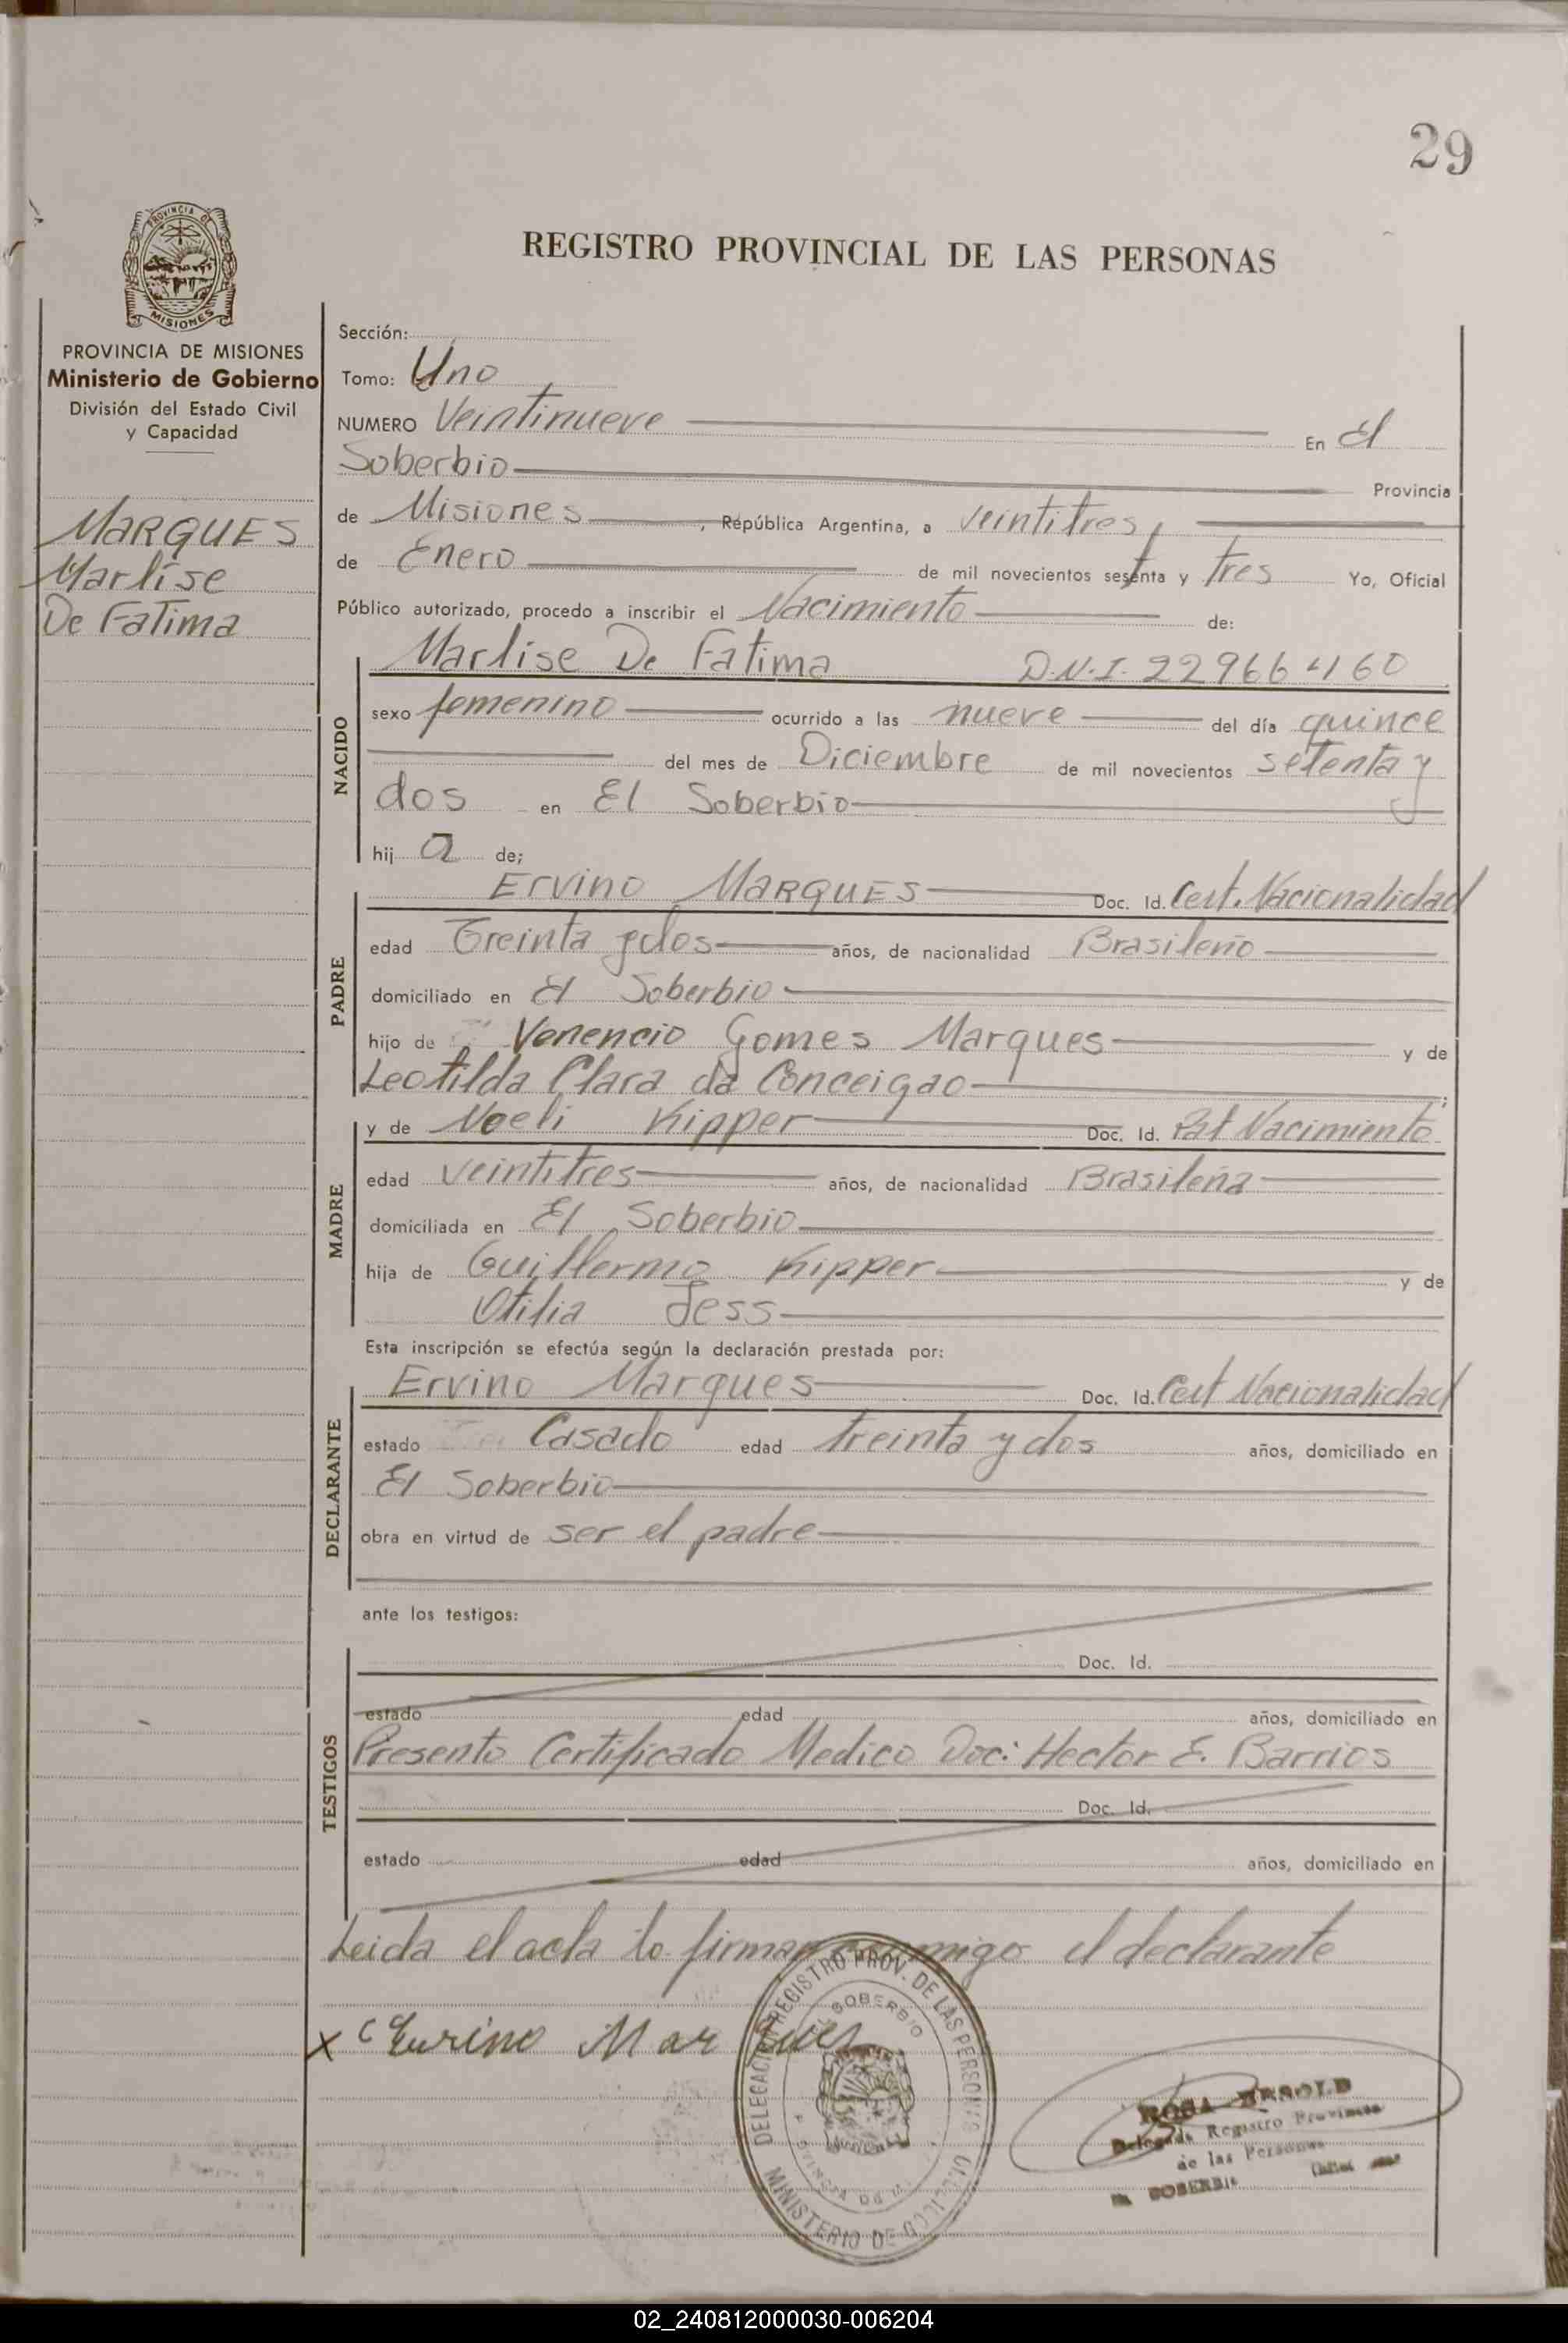 29
PROVINCIA DE
MISIONES
REGISTRO PROVINCIAL DE LAS PERSONAS
PROVINCIA DE MISIONES
Ministerio de Gobierno
División del Estado Civil
y Capacidad
MARQUES
Marlise
De Fatima
Sección:
Tomo: Uno
NUMERO Veintinueve En El
Soberbio Provincia
de Misiones, República Argentina, a veintitres
de Enero de mil novecientos sesenta y tres Yo, Oficial
Público autorizado, procedo a inscribir el Nacimiento de:
Marlise De Fatima D.N.I. 22966460
NACIDO
sexo femenino ocurrido a las nueve del día quince
del mes de Diciembre de mil novecientos setenta y
dos en El Soberbio
hij a de;
PADRE
Ervino MARQUES Doc. Id. Cert. Nacionalidad
edad Treinta y dos años, de nacionalidad Brasileño
domiciliado en El Soberbio
hijo de Venencio Gomes Marques y de
Leotilda Clara da Conceigao
MADRE
y de Noeli Kipper Doc. Id. Pat Nacimiento
edad veintitres años, de nacionalidad Brasileña
domiciliada en El Soberbio
hija de Guillermo Kipper y de
Otilia Jess
Esta inscripción se efectúa según la declaración prestada por:
DECLARANTE
Ervino Marques Doc. Id. Cert Nacionalidad
estado Casado edad treinta y dos años, domiciliado en
El Soberbio
obra en virtud de ser el padre
ante los testigos:
TESTIGOS
Doc. Id.
estado edad años, domiciliado en
Presento Certificado Medico Doc: Hector E. Barrios
Doc. Id.
estado edad años, domiciliado en
Leida el acta lo firman conmigo el declarante
x Eurino Marques
DELEGACION REGISTRO PROV. DE LAS PERSONAS
EL SOBERBIO
MINISTERIO DE
ROSA
Delegada Registro Provincial
de las Personas
SOBERBIO
02_240812000030-006204